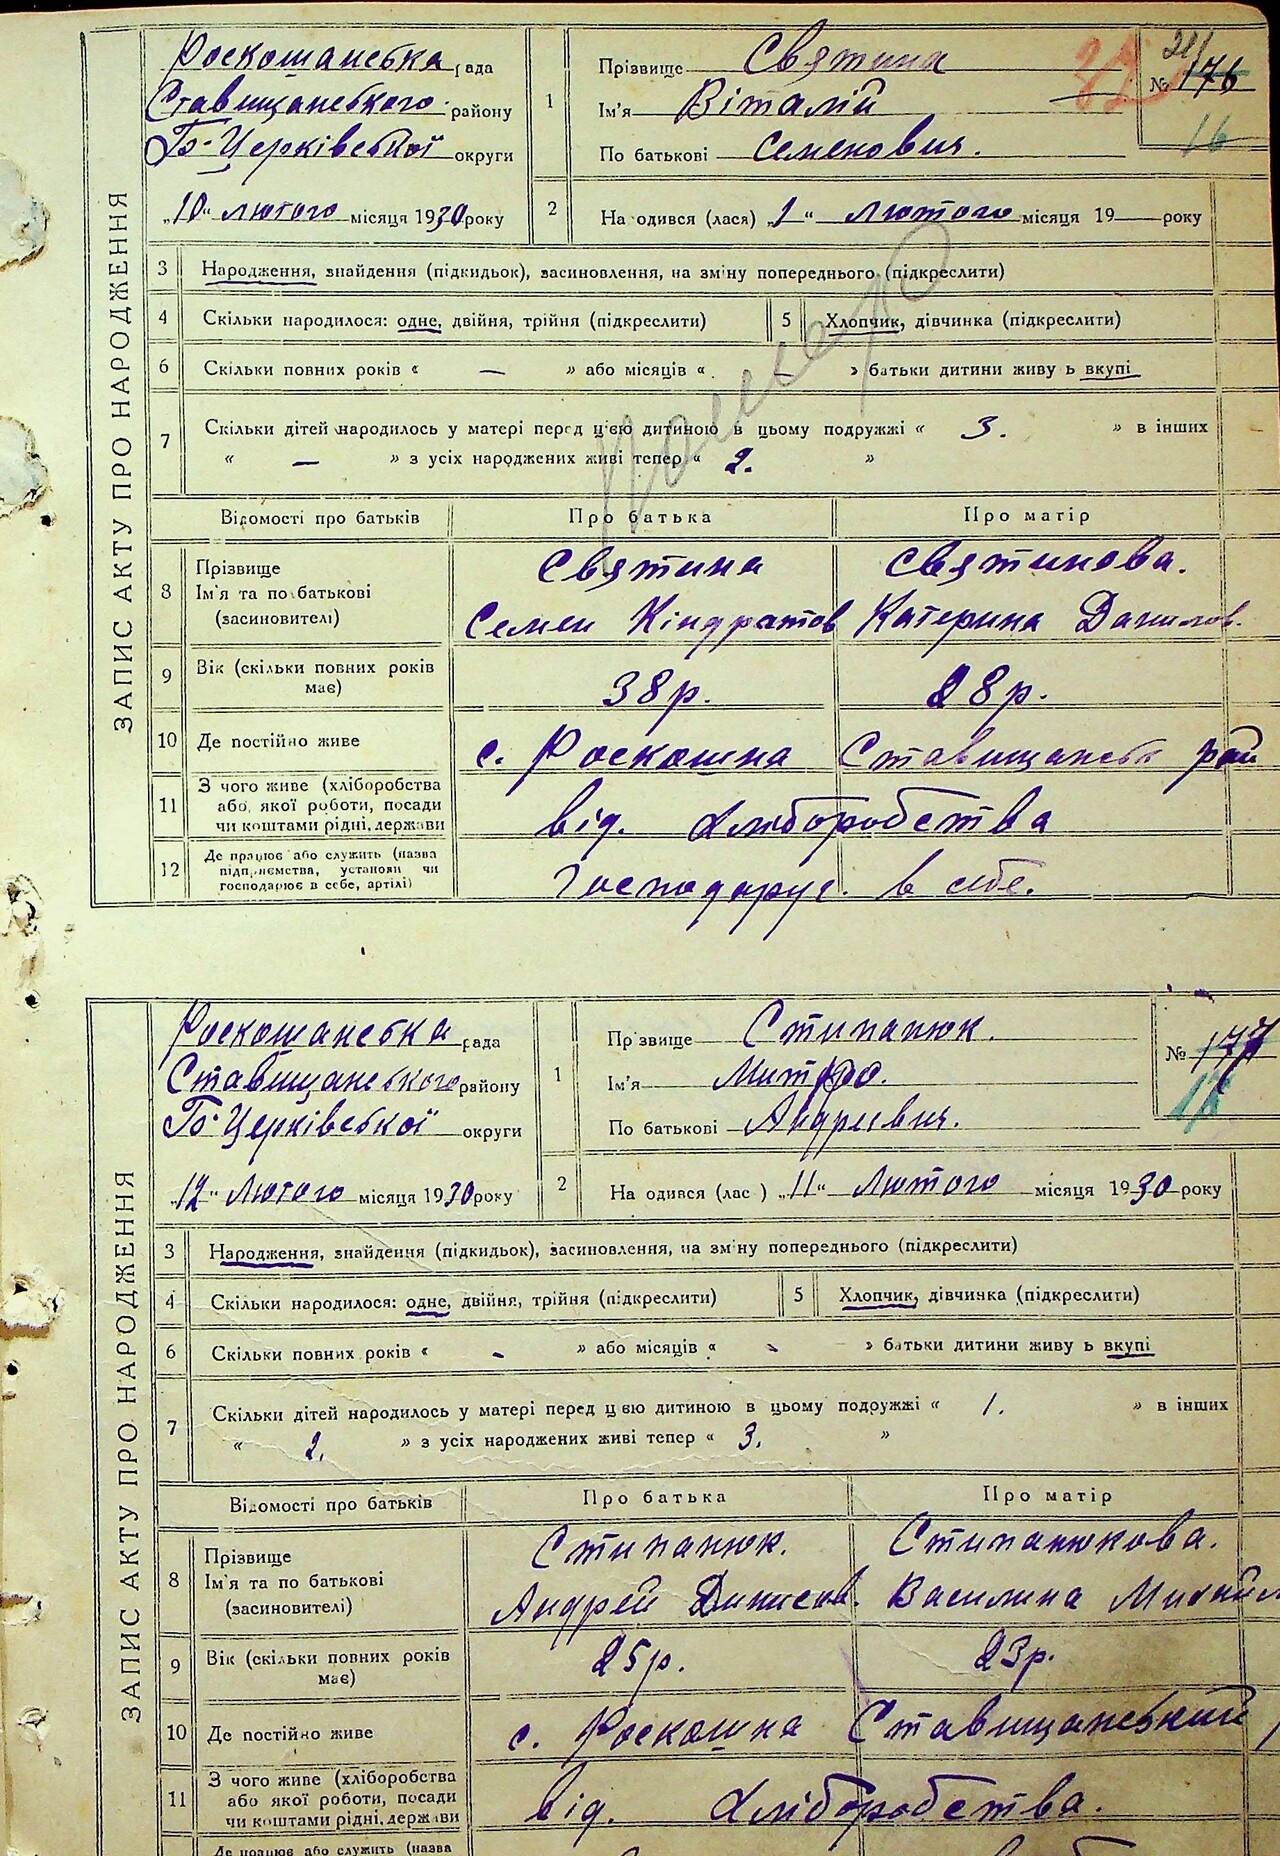 ЗАПИС АКТУ ПРО НАРОДЖЕННЯ
Роскошанська рада
Ставищанського району
Б-Церківської округи
„10" лютого місяця 1930 року
1 Прізвище Святина
Ім'я Віталій
По батькові Семенович.
№ 176
16
2 На одився (лася) „1" лютого місяця 19 — року
3 Народження, знайдення (підкидьок), засиновлення, на зміну попереднього (підкреслити)
4 Скільки народилося: одне, двійня, трійня (підкреслити) 5 Хлопчик, дівчинка (підкреслити)
6 Скільки повних років « — » або місяців « — » батьки дитини живу ь вкупі
7 Скільки дітей народилось у матері перед цією дитиною в цьому подружжі « 3. » в інших
« — » з усіх народжених живі тепер « 2. »
Відомості про батьків Про батька Про матір
8 Прізвище Святина Святинова.
Ім'я та по батькові
(засиновителі) Семен Кіндратов Катерина Данилов.
9 Вік (скільки повних років має) 38 р. 28 р.
10 Де постійно живе с. Роскошна Ставищанськ рай
11 З чого живе (хліборобства
або, якої роботи, посади
чи коштами рідні, держави від. хліборобства
12 Де працює або служить (назва
підприємства, установи чи
господарює в себе, артілі) Господарує. в себе.
ЗАПИС АКТУ ПРО НАРОДЖЕННЯ
Роскошанська рада
Ставищанського району
Б-Церківської округи
„12" лютого місяця 1930 року
1 Пр звище Стипанюк.
Ім'я Митро.
По батькові Андрієвич.
№ 177
17
2 На одився (лас ) „11" лютого місяця 1930 року
3 Народження, знайдення (підкидьок), засиновлення, на зміну попереднього (підкреслити)
4 Скільки народилося: одне, двійня, трійня (підкреслити) 5 Хлопчик, дівчинка (підкреслити)
6 Скільки повних років « - » або місяців « - » батьки дитини живу ь вкупі
7 Скільки дітей народилось у матері перед цією дитиною в цьому подружжі « 1. » в інших
« 2. » з усіх народжених живі тепер « 3. »
Відомості про батьків Про батька Про матір
8 Прізвище Стипанюк. Стипанюкова.
Ім'я та по батькові
(засиновителі) Андрей Динисов. Василина Михайл
9 Вік (скільки повних років має) 25 р. 23 р.
10 Де постійно живе с. Роскошна Ставищанський
11 З чого живе (хліборобства
або якої роботи, посади
чи коштами рідні, держави від. хліборобства.
Де працює або служить (назва